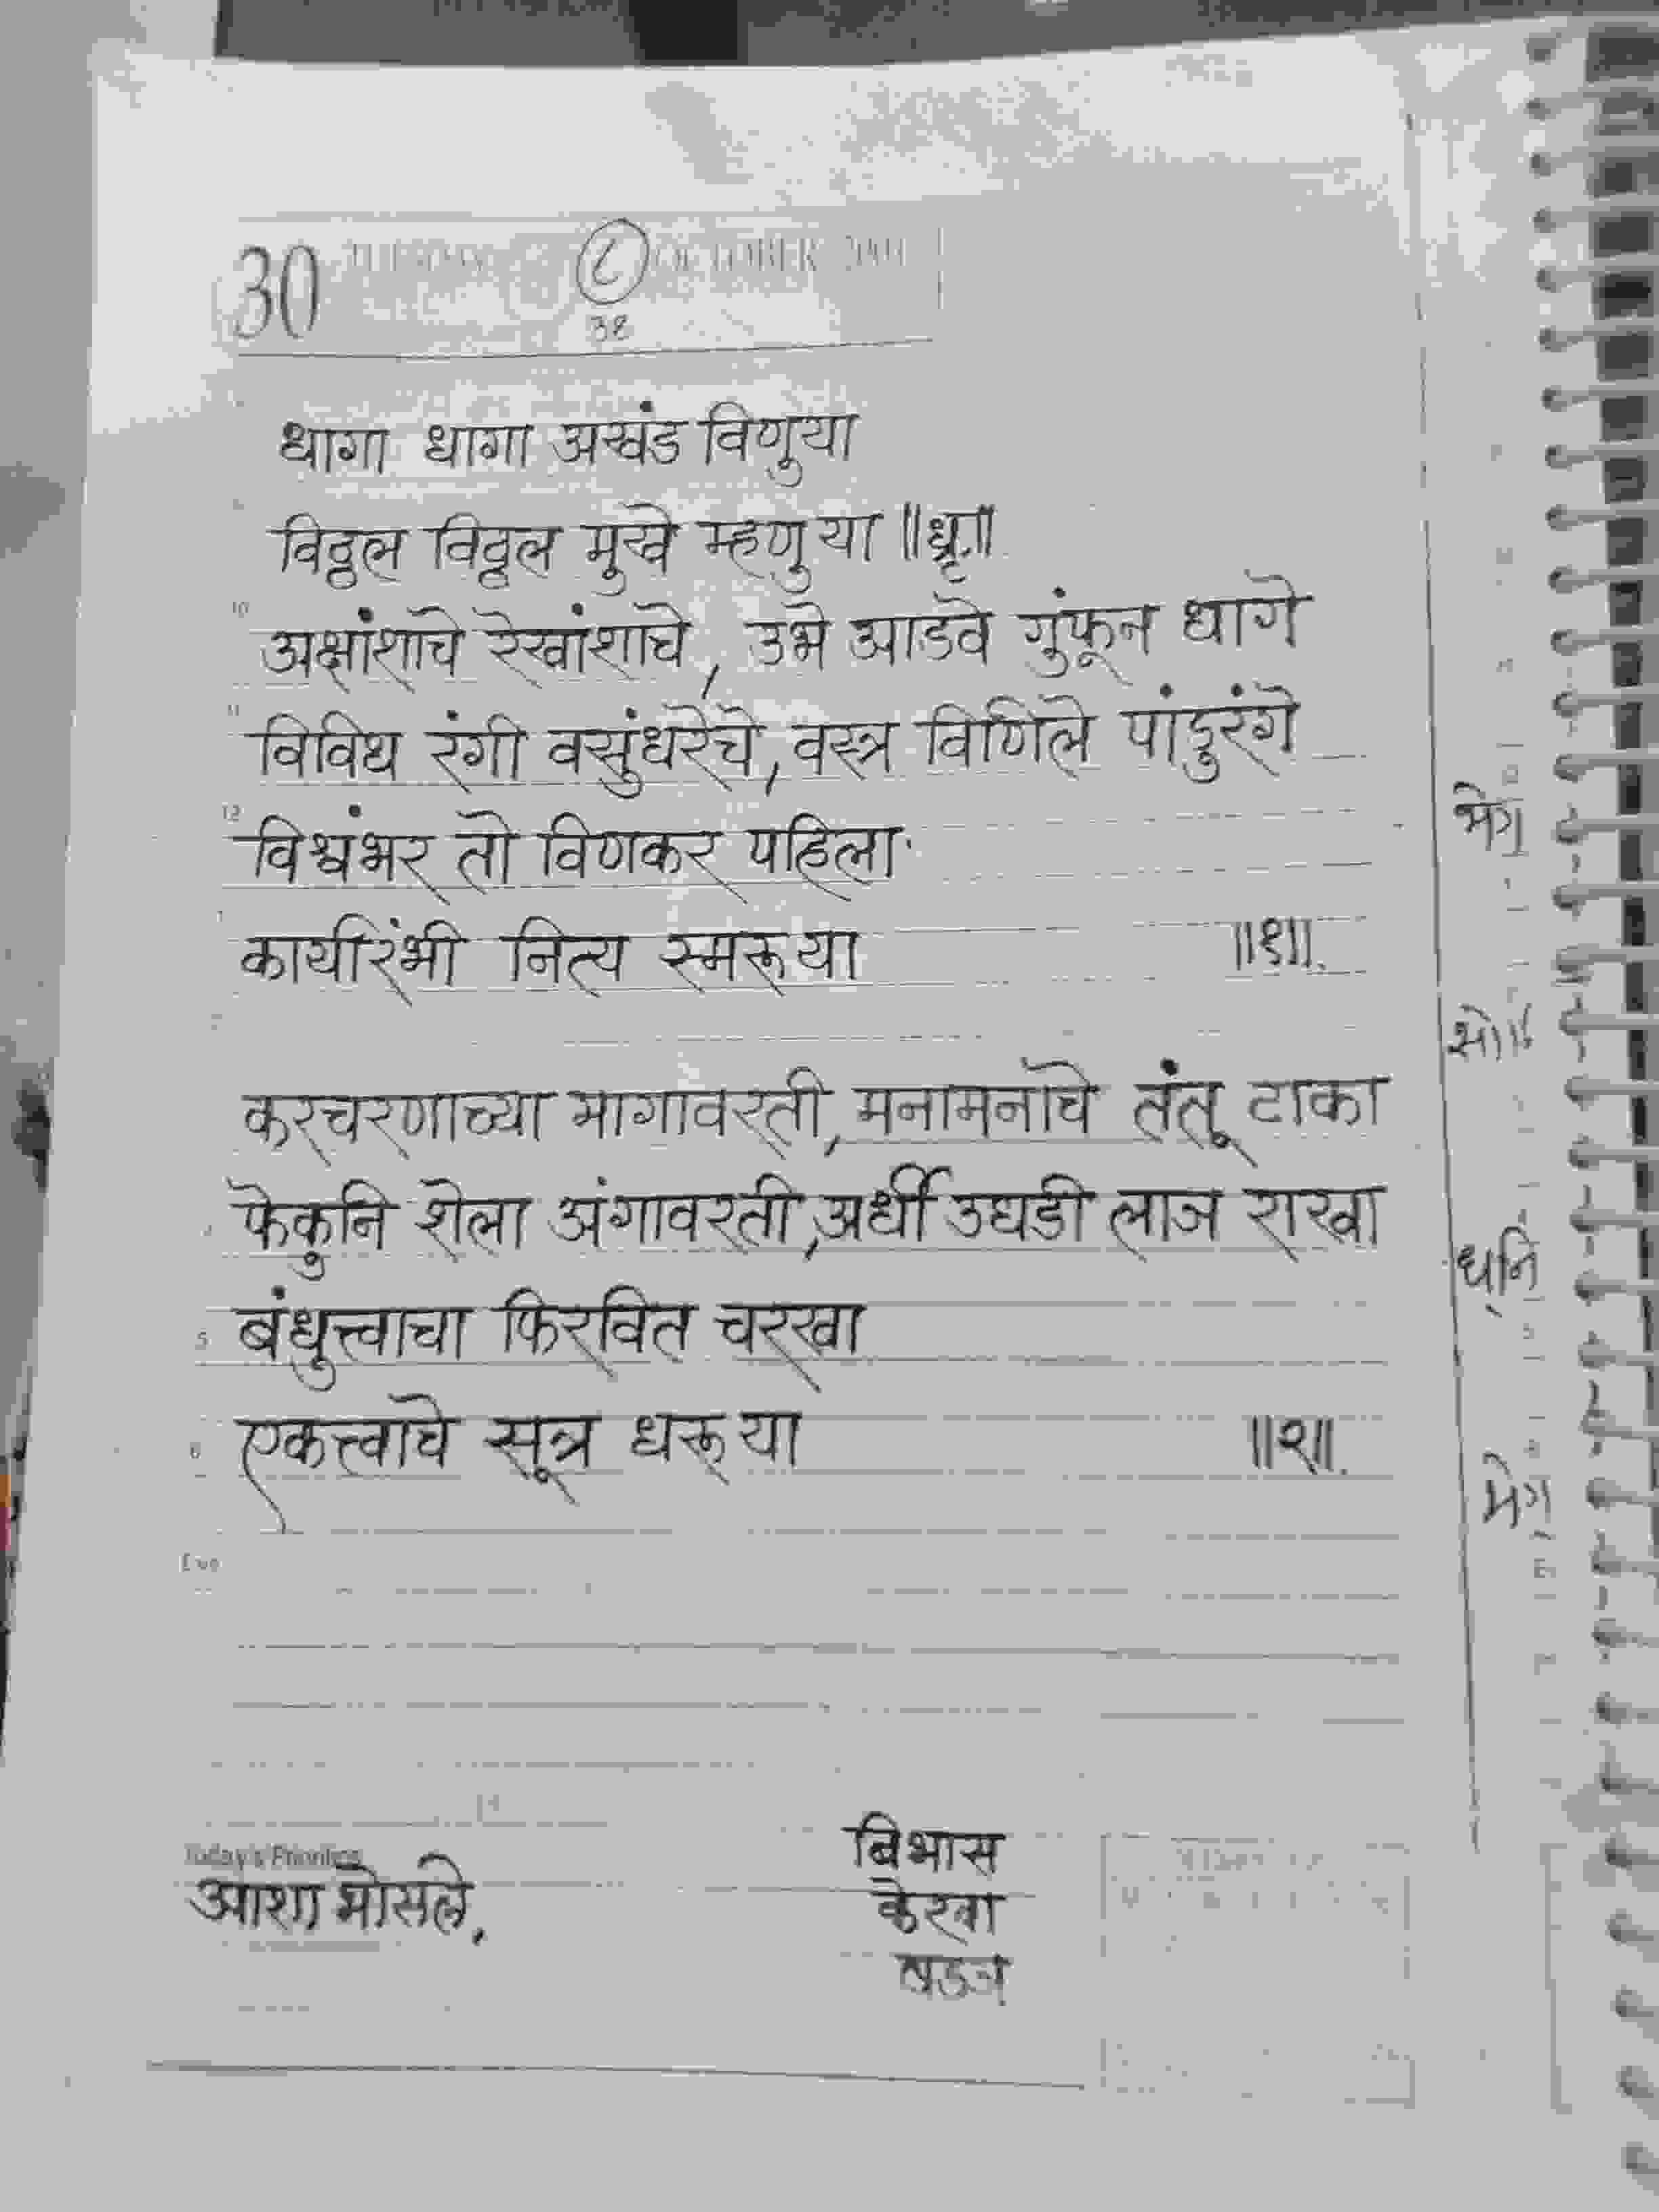 30 TUESDAY ८ OCTOBER 2001
३४
धागा धागा अखंड विणुया
विठ्ठल विठ्ठल मुखे म्हणुया ॥धृ.॥
10 अक्षांशाचे रेखांशाचे, उभे आडवे गुंफून धागे
11 विविध रंगी वसुंधरेचे, वस्त्र विणिले पांडुरंगे
12 विश्वंभर तो विणकर पहिला
कार्यारंभी नित्य स्मरूया ॥१॥.
करचरणाच्या मागावरती, मनामनाचे तंतू टाका
फेकुनि शेला अंगावरती, अर्धी उघडी लाज राखा
5 बंधुत्त्वाचा फिरवित चरखा
6 एकत्त्वाचे सूत्र धरूया ॥२॥.
Eve
Today's Priorities
आशा भोसले.
बिभास
केरवा